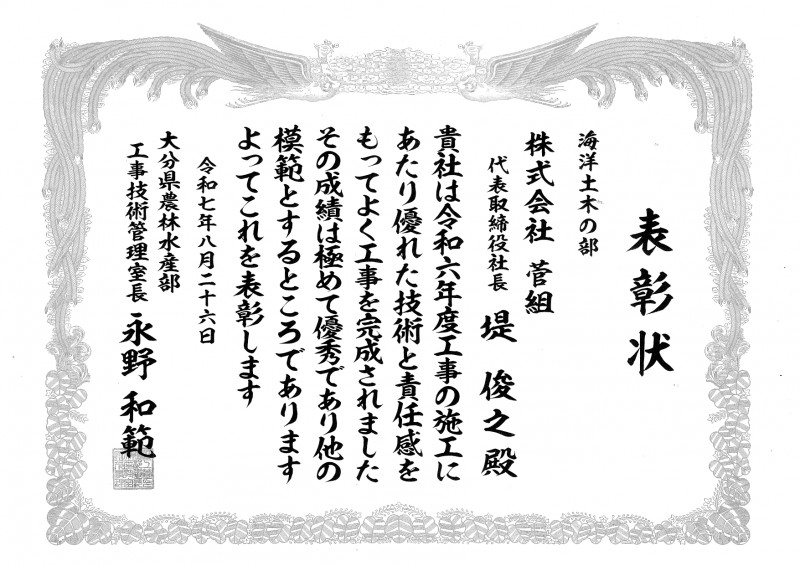 表彰状
海洋土木の部
株式会社 菅組
代表取締役社長 堤 俊之殿
貴社は令和六年度工事の施工に
あたり優れた技術と責任感を
もってよく工事を完成されました
その成績は極めて優秀であり他の
模範とするところであります
よってこれを表彰します
令和七年八月二十六日
大分県農林水産部
工事技術管理室長 永野 和範